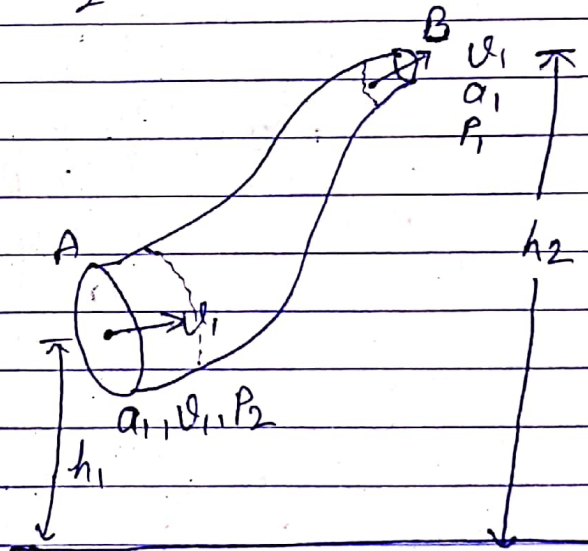 B
v₁
a₁
P₁
h2
A
v₁
a₁, v₁, P₂
h₁